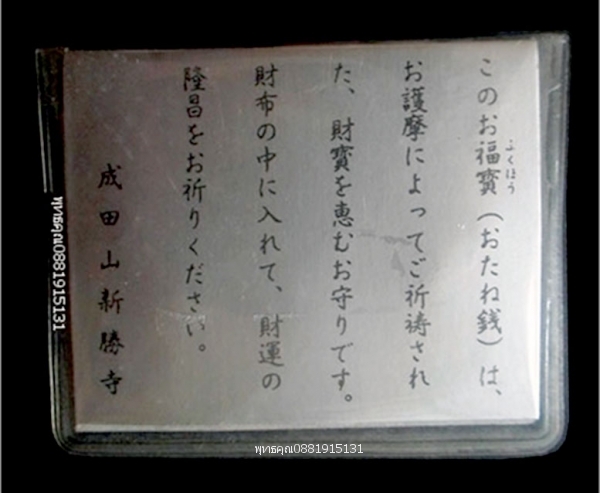 このお福寳（おたね銭）は、
ふくほう
お護摩によってご祈祷され
た、財寳を恵むお守りです。
財布の中に入れて、財運の
隆昌をお祈りください。
成田山新勝寺
พุทธคุณ0881915131
พุทธคุณ0881915131